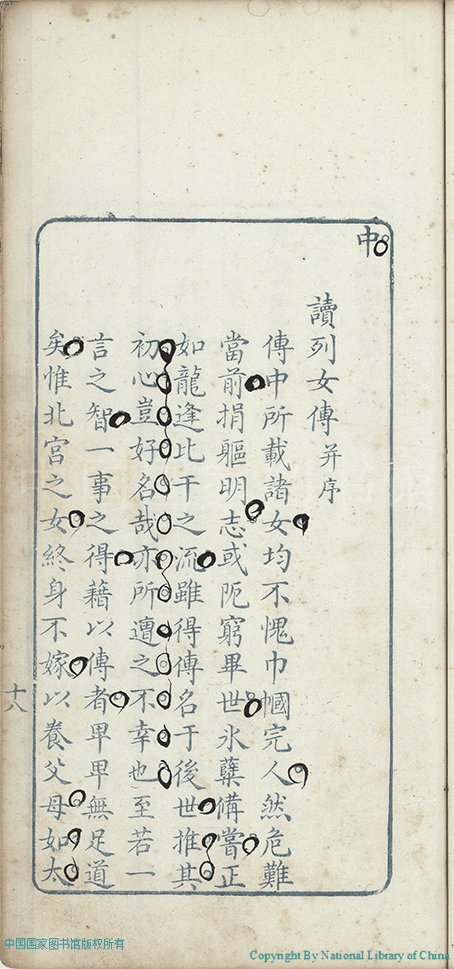 中
讀列女傳并序
傳中所載諸女均不愧巾幗完人然危難
當前捐軀明志或阨窮畢世氷蘖備嘗正
如龍逢比干之流雖得傳名于後世推其
初心豈好名哉亦所遭之不幸也至若一
言之智一事之得藉以傳者卑卑無足道
矣惟北宮之女終身不嫁以養父母如太
十八
中国国家图书馆版权所有
Copyright By National Library of China